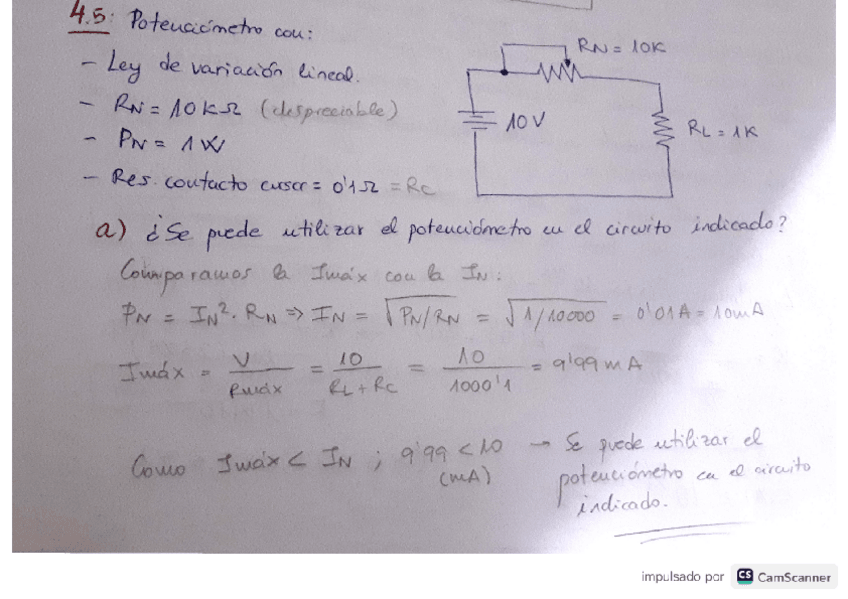 4.5: Potenciómetro con:
- Ley de variación lineal.
- RN = 10 KΩ (despreciable)
- PN = 1 W
- Res. contacto cursor = 0'1 Ω = RC
RN = 10K
10 V
RL = 1K
a) ¿Se puede utilizar el potenciómetro en el circuito indicado?
Comparamos la Imáx con la IN:
PN = IN² · RN => IN = √PN/RN = √1/10000 = 0'01A = 10mA
Imáx = V / Rmáx = 10 / RL + RC = 10 / 1000'1 = 9'99 mA
Como Imáx < IN ; 9'99 < 10 → Se puede utilizar el
(mA) potenciómetro en el circuito
indicado.
impulsado por CS CamScanner